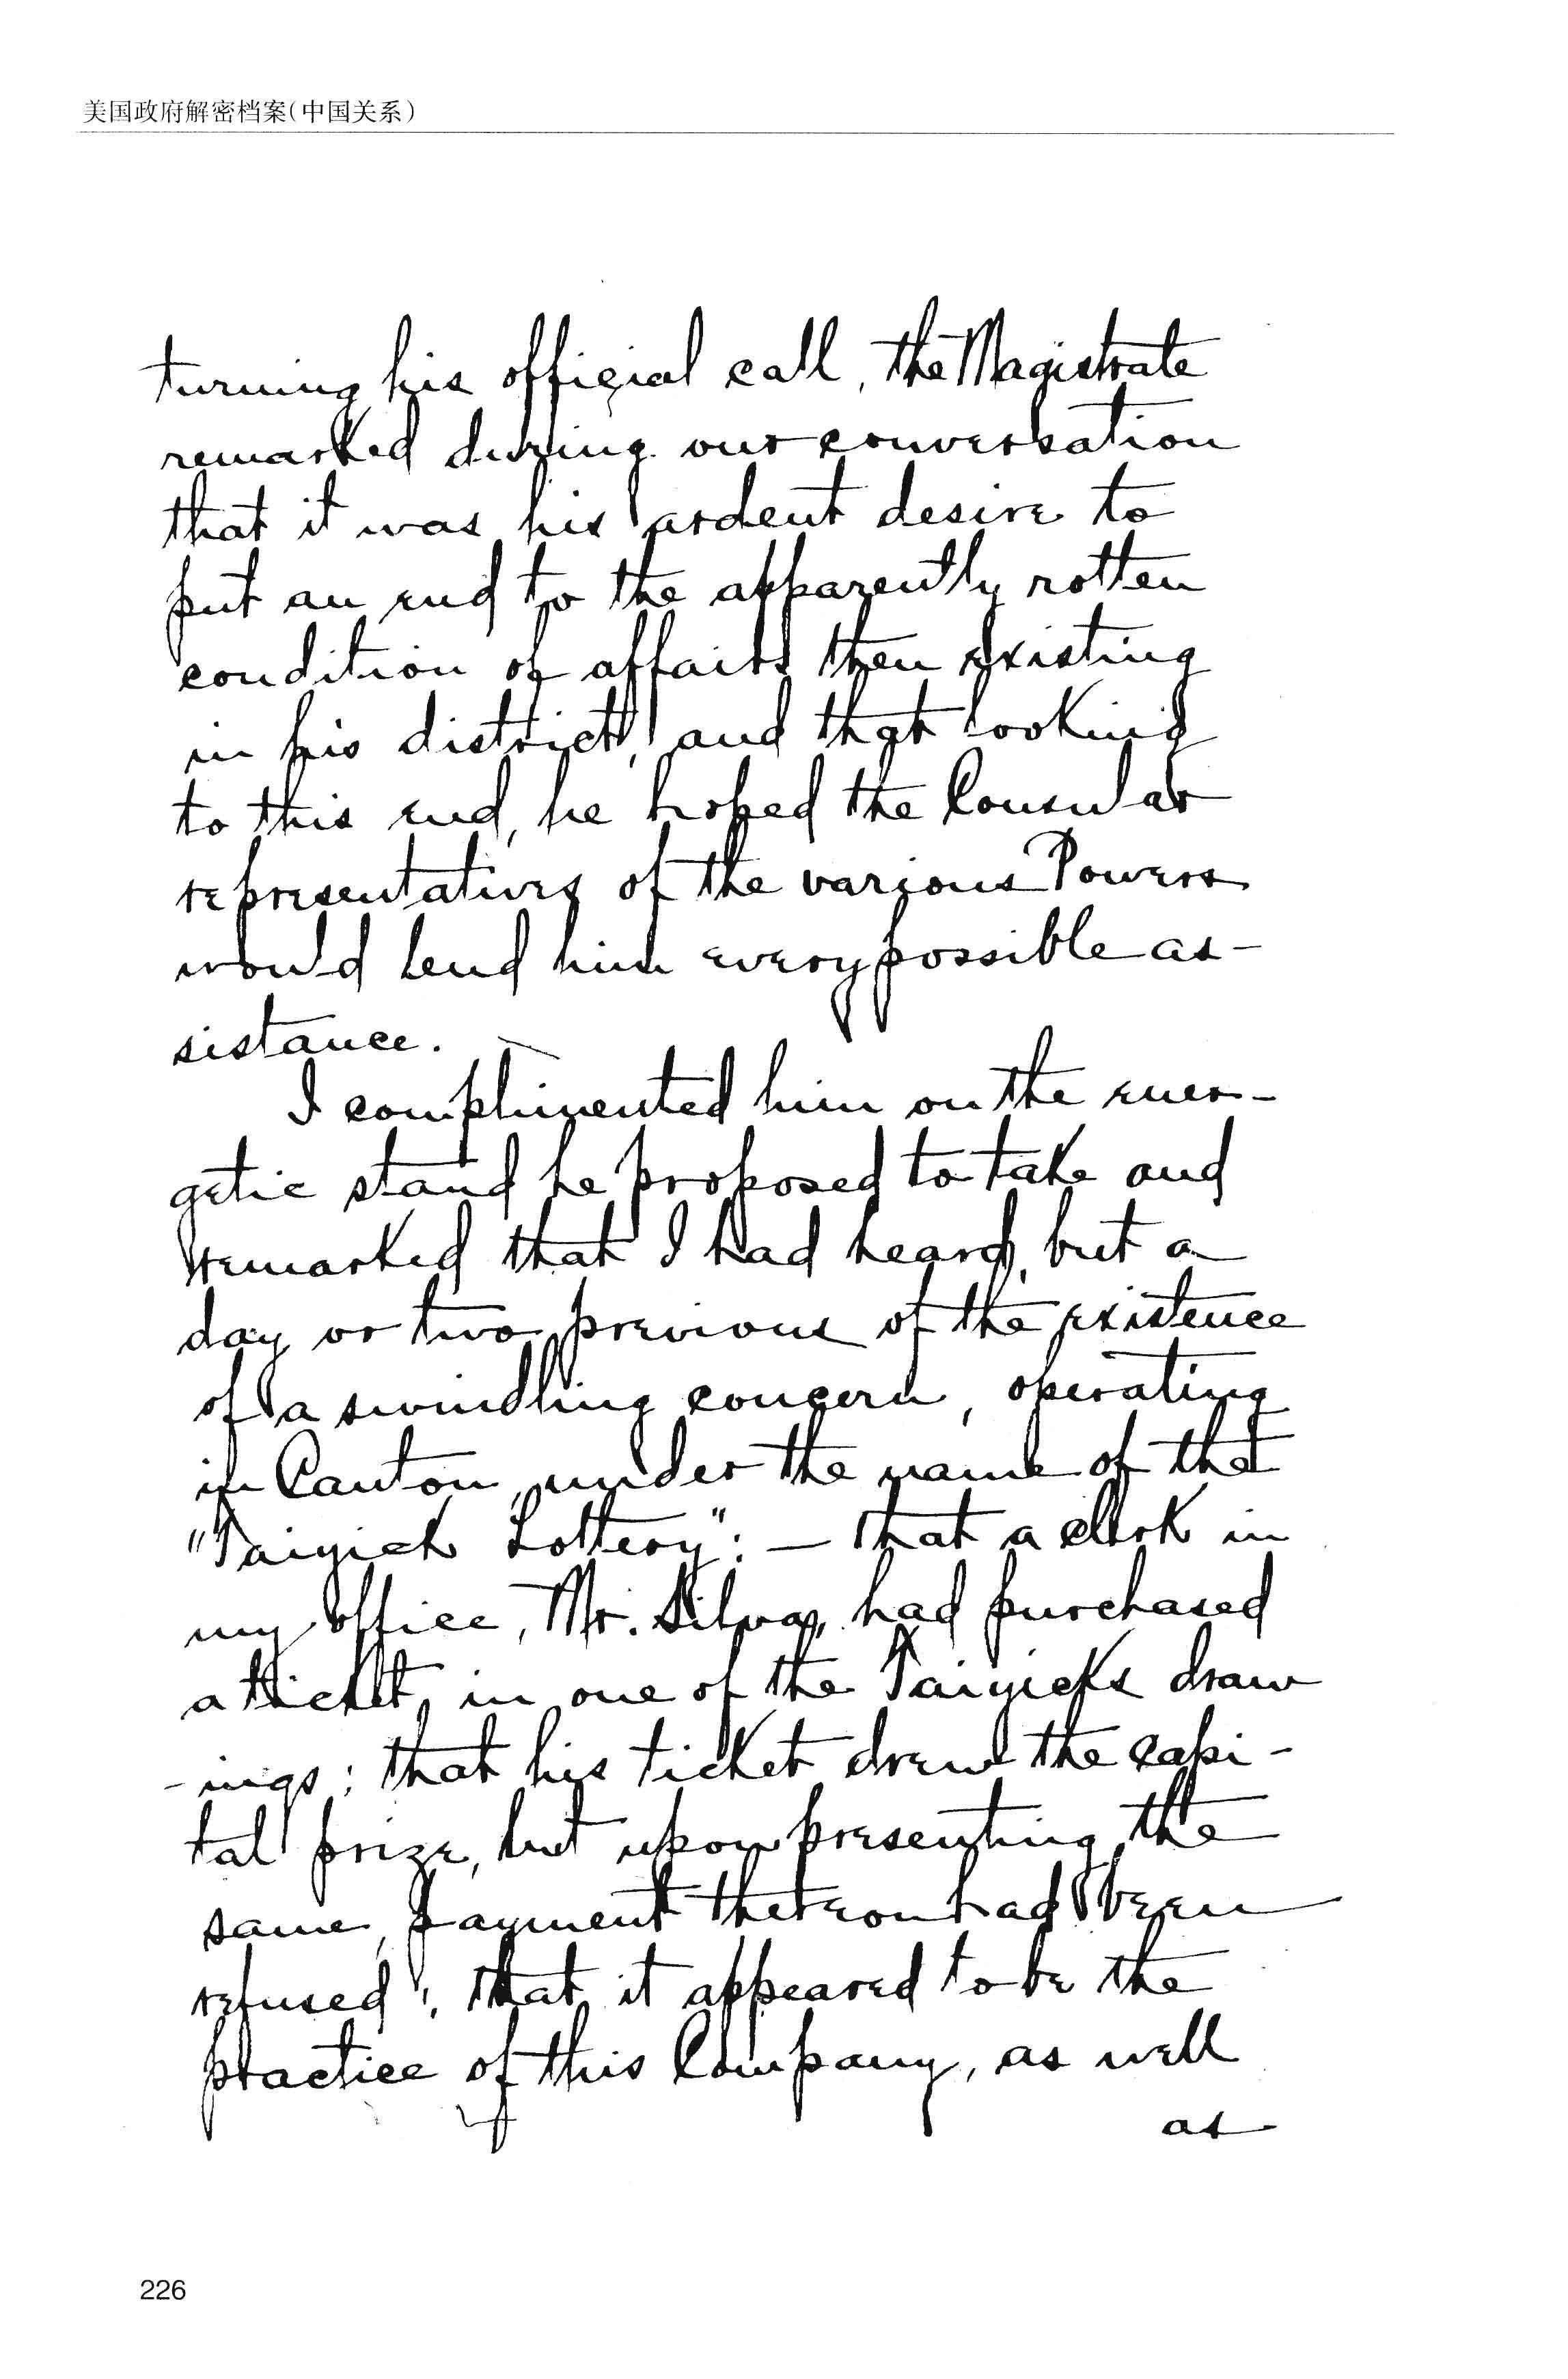 美国政府解密档案(中国关系)
turning his official call, the Magistrate
remarked during our conversation
that it was his ardent desire to
put an end to the apparently rotten
condition of affairs then existing
in his district, and that looking
to this end, he hoped the Consular
representatives of the various Powers
would lend him every possible as-
sistance.
I complimented him on the ener-
getic stand he proposed to take and
remarked that I had heard, but a
day or two previous of the existence
of a swindling concern, operating
in Canton, under the name of the
"Taiyick Lottery": — that a clerk in
my office, Mr. Silva, had purchased
a ticket, in one of the Taiyicks draw
-ings; that his ticket drew the capi-
tal prize, but upon presenting the
same, payment thereon had been
refused; that it appeared to be the
practice of this Company, as well
as
226